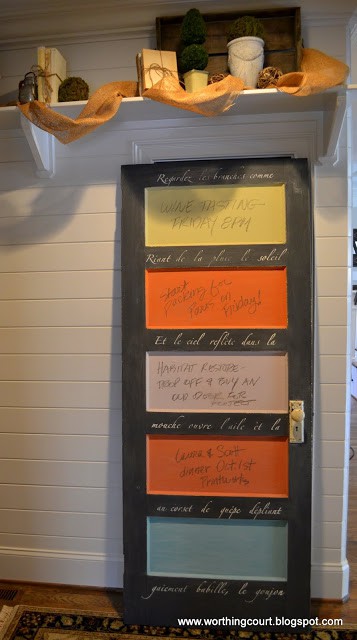 Regardez les branches comme
WINE TASTING
FRIDAY 8PM
Riant de la pluie le soleil
start
packing for
Paris on
Friday!
Et le ciel reflète dans la
HABITAT RESTORE-
DROP OFF & BUY AN
OLD DOOR FOR
PROJECT
mouche ouvre l'aile et la
Laura & Scott
dinner Oct. 1st
au corset de guêpe dépliant
gaiement babille, le goujon
www.worthingcourt.blogspot.com